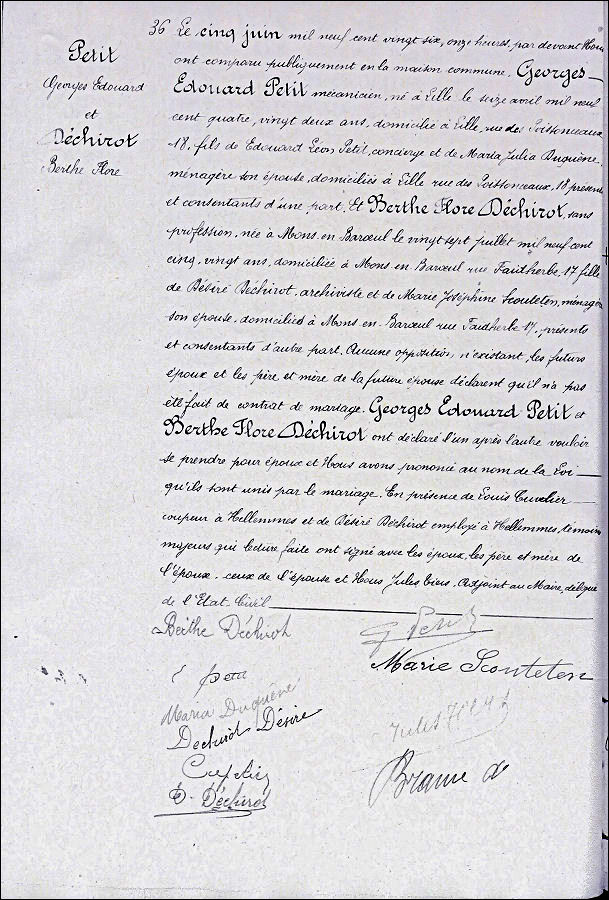 Petit
Georges Edouard
et
Déchirot
Berthe Flore
36 Le cinq juin mil neuf cent vingt six, onze heures, par devant Nous
ont comparu publiquement en la maison commune. Georges
Edouard Petit mécanicien, né à Lille le seize avril mil neuf
cent quatre, vingt deux ans, domicilié à Lille, rue des Poissonceaux
18, fils de Edouard Léon Petit, concierge et de Maria Julia Duquêne
ménagère son épouse, domiciliés à Lille rue des Poissonceaux, 18 présents
et consentants d'une part. Et Berthe Flore Déchirot, sans
profession, née à Mons en Barœul le vingt sept juillet mil neuf cent
cinq, vingt ans, domiciliée à Mons en Barœul rue Faidherbe, 17 fille
de Désiré Déchirot, archiviste et de Marie Joséphine Scouteten, ménagère
son épouse, domiciliés à Mons en Barœul rue Faidherbe 17, présents
et consentants d'autre part. Aucune opposition n'existant, les futurs
époux et les père et mère de la future épouse déclarent qu'il n'a pas
été fait de contrat de mariage. Georges Edouard Petit et
Berthe Flore Déchirot ont déclaré l'un après l'autre vouloir
se prendre pour époux et Nous avons prononcé au nom de la Loi
qu'ils sont unis par le mariage. En présence de Louis Cuvelier
coupeur à Hellemmes et de Désiré Déchirot employé à Hellemmes, témoins
majeurs qui lecture faite ont signé avec les époux, les père et mère de
l'époux, ceux de l'épouse et Nous Jules Adjoint au Maire, délégué
de l'Etat-Civil
Berthe Déchirot
G Petit
Marie Scouteten
Petit
Maria Duquêne
Déchirot Désiré
Jules
D. Déchirot